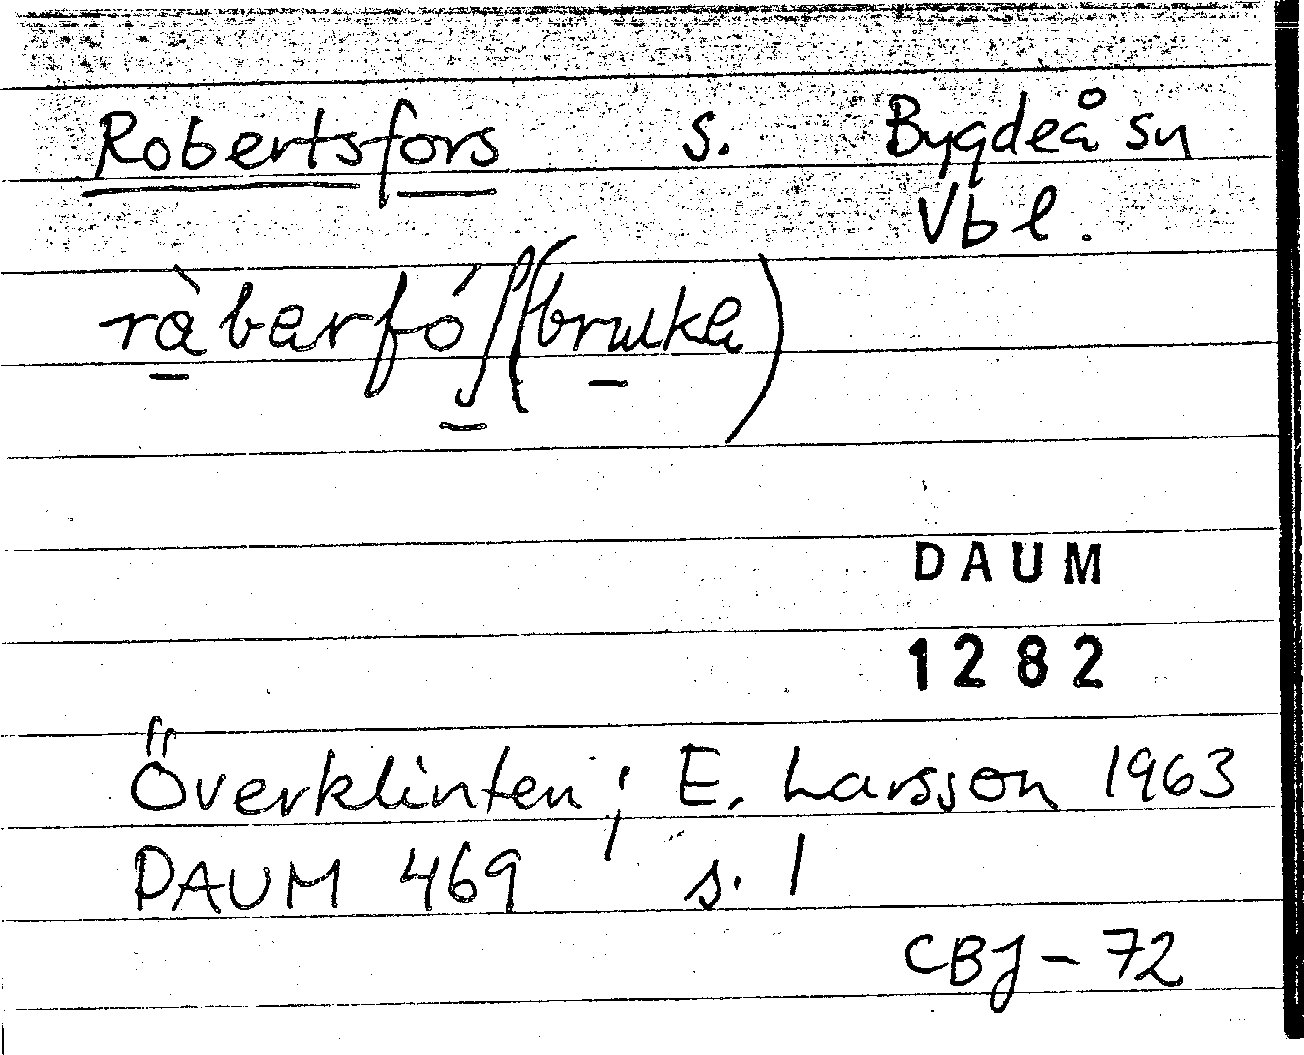 Robertsfors s. Bygdeå sn
Vbl.
ràbɐrfóʃ (brukɐ)
DAUM
1282
Överklinten; E. Larsson 1963
DAUM 469 s. 1
CBJ-72